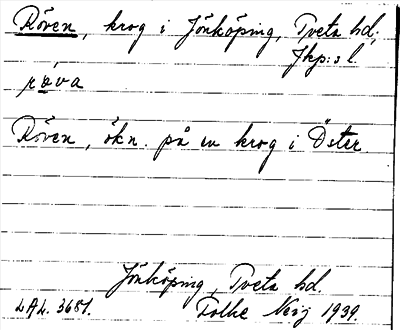 Röven, krog i Jönköping, Tveta hd,
Jkp:s l.
röva
Röven, ökn. på en krog i Öster
Jönköping, Tveta hd.
LAL. 3687. Folke Neij 1939.